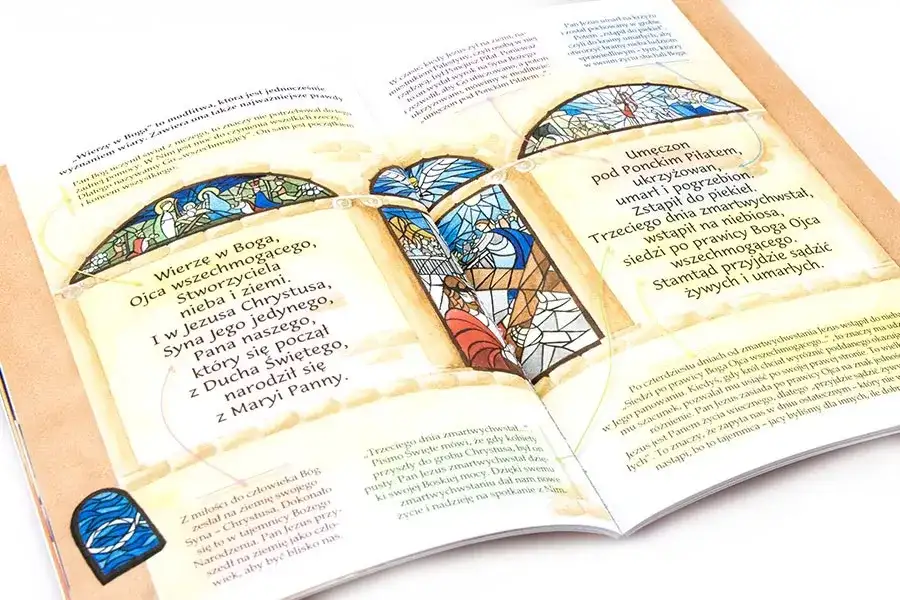 „Wierzę w Boga” to modlitwa, która jest jednocześnie
wyznaniem wiary. Zawiera ona także najważniejsze prawdy
Pan Bóg uczynił świat z niczego, to znaczy nie potrzebował do tego
żadnej pomocy. W Nim jest moc do czynienia wszelkich rzeczy.
Dlatego nazywamy Go „wszechmogący”. On sam jest początkiem
i końcem wszystkiego.
Wierzę w Boga,
Ojca wszechmogącego,
Stworzyciela
nieba i ziemi.
I w Jezusa Chrystusa,
Syna Jego jedynego,
Pana naszego,
który się począł
z Ducha Świętego,
narodził się
z Maryi Panny.
Z miłości do człowieka Bóg
zesłał na ziemię swojego
Syna – Chrystusa. Dokonało
się to w tajemnicy Bożego
Narodzenia. Pan Jezus przy-
szedł na ziemię jako czło-
wiek, aby być blisko nas.
„Trzeciego dnia zmartwychwstał...”
Pismo Święte mówi, że gdy kobiety
przyszły do grobu Chrystusa, był on
pusty. Pan Jezus zmartwychwstał dzię-
ki swojej Boskiej mocy. Dzięki swemu
zmartwychwstaniu dał nam nowe
życie i nadzieję na spotkanie z Nim.
W czasie, kiedy Jezus żył na ziemi, na-
miestnikiem Palestyny, czyli osobą w niej
rządzącą, był Poncjusz Piłat. Ponieważ
on wydał wyrok na Syna Bożego
i pozwolił, aby Go ubiczowano, a potem
ukrzyżowano, mówimy w modlitwie:
„umęczon pod Ponckim Piłatem...”
Pan Jezus umarł na krzyżu
i został pochowany w grobie.
Potem „zstąpił do piekieł”,
czyli do krainy umarłych, aby
otworzyć bramy nieba ludziom
sprawiedliwym – tym, którzy
w swoim życiu słuchali Boga.
Umęczon
pod Ponckim Piłatem,
ukrzyżowan,
umarł i pogrzebion.
Zstąpił do piekieł.
Trzeciego dnia zmartwychwstał,
wstąpił na niebiosa,
siedzi po prawicy Boga Ojca
wszechmogącego.
Stamtąd przyjdzie sądzić
żywych i umarłych.
Po czterdziestu dniach od zmartwychwstania Jezus wstąpił do nieba
„Siedzi po prawicy Boga Ojca wszechmogącego...”, to znaczy ma udział
w Jego panowaniu. Kiedyś, gdy król chciał wyróżnić poddanego okazując
mu szacunek, pozwalał mu usiąść po swojej prawej stronie. To oznaczało
różnienie. Pan Jezus zasiada po prawicy Ojca na znak
Jezus jest Panem życia wiecznego, dlatego „przyjdzie sądzić żywych
łych”. To znaczy, że zapyta nas w dniu ostatecznym – który nie
nastąpi, bo to tajemnica – jacy byliśmy dla innych, ile